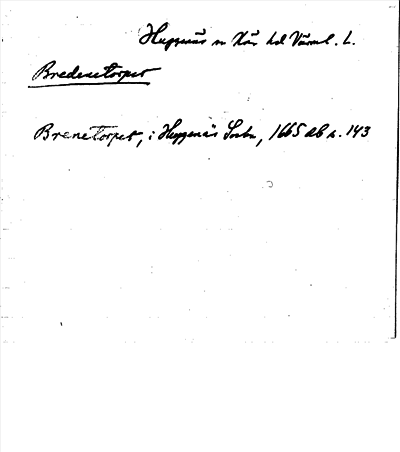 Huggenäs sn Näs hd Värml. L.
Bredenetorpet
Brenetorpet, i Huggenäs Sochn, 1665 AB s. 143